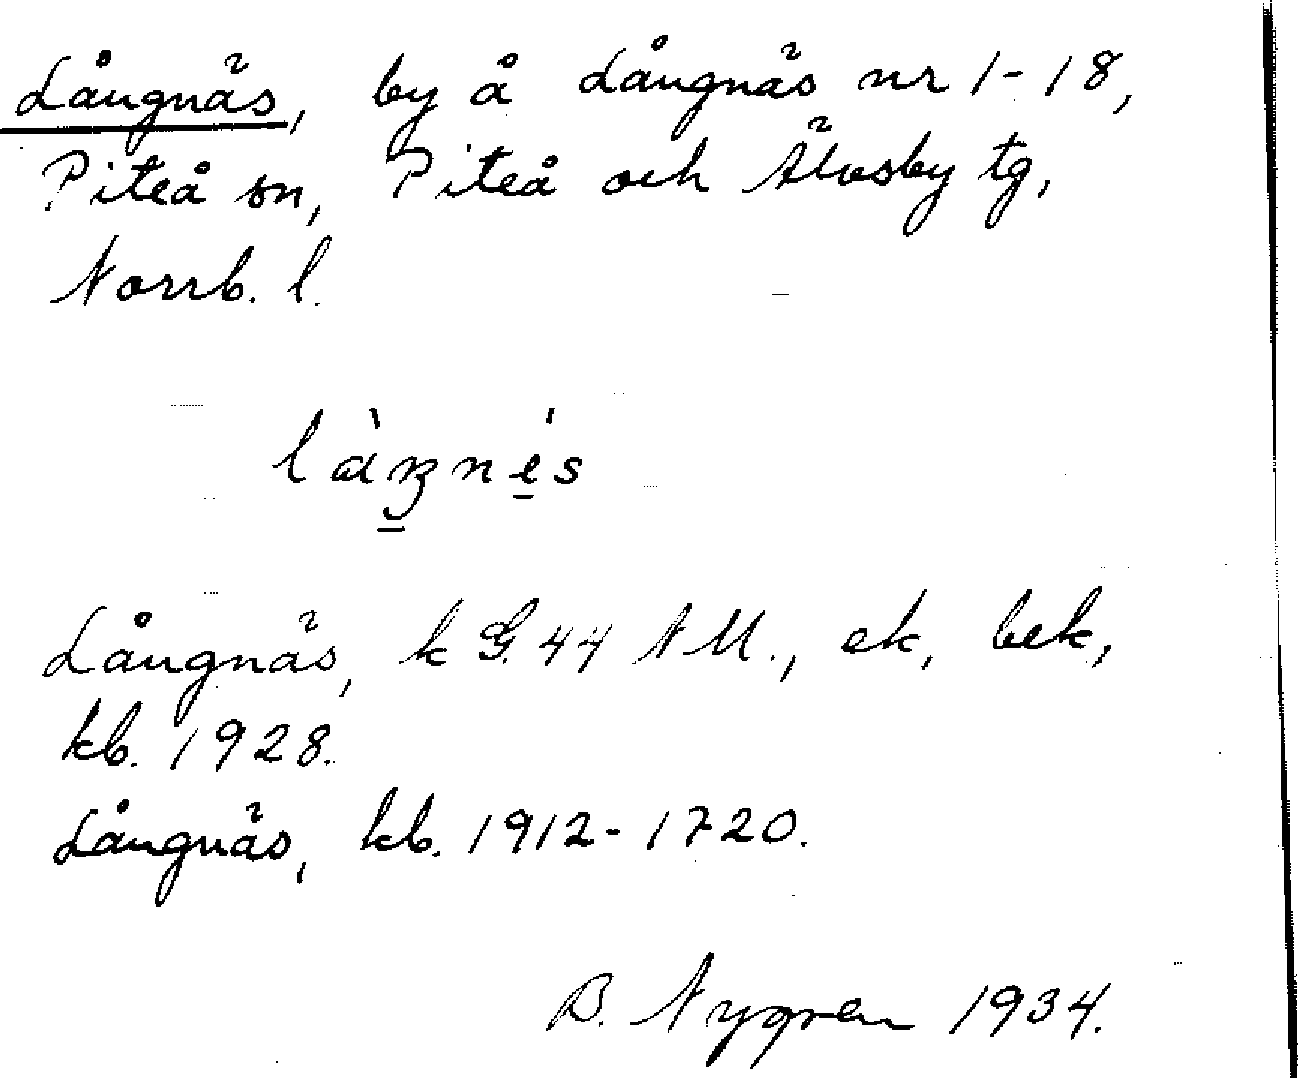 Långnäs, by å Långnäs nr 1-18,
Piteå sn, Piteå och Älvsby tg,
Norrb. l.
Långnäs, k G. 44 N M., ek, bek,
kb. 1928.
Långnäs, kb. 1912-1720.
B. Nygren 1934.